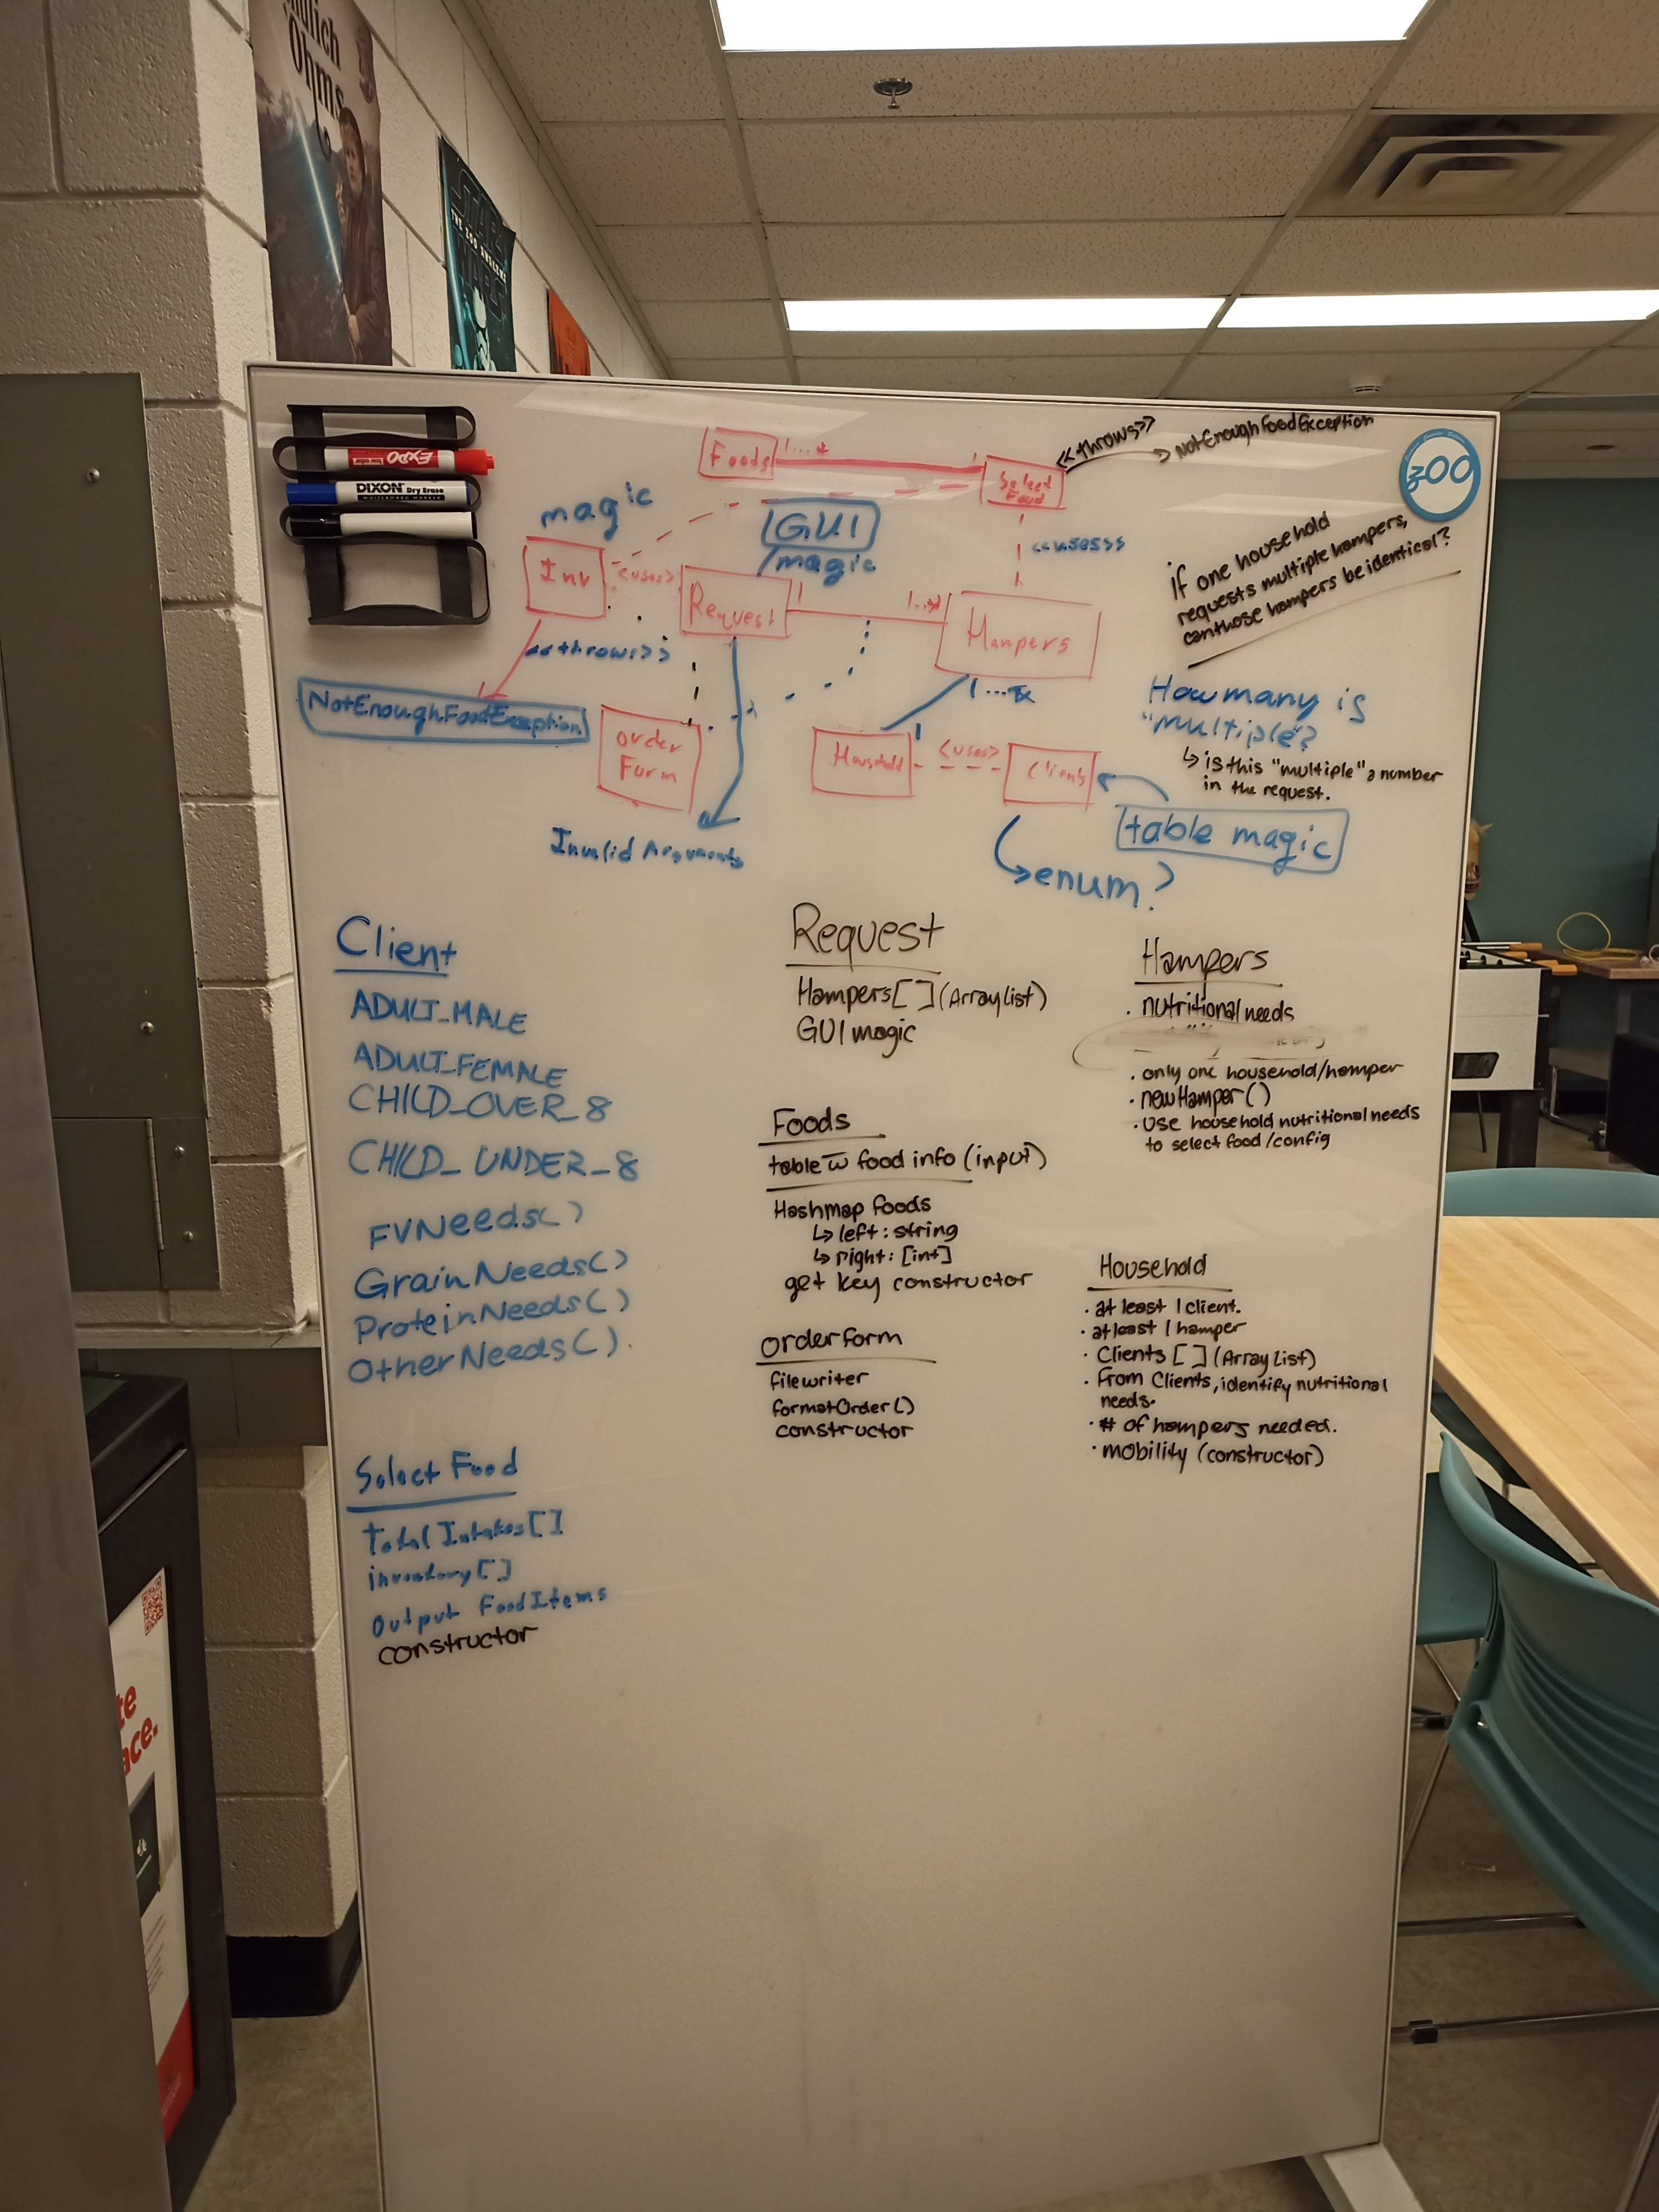 Ohms
STAR
WARS
EXPO
DIXON Dry Erase
WHITEBOARD MARKER
Foods
1...*
1
Select
Food
<<throws>>
NotEnoughFoodException
magic
GUI
/magic
<<uses>>
Inv
<uses>
Request
1
1...*
Hampers
<<throws>>
NotEnoughFoodException
order
Form
1
Household
<uses>
Clients
Invalid Arguments
table magic
enum?
if one household
requests multiple hampers,
can those hampers be identical?
How many is
"multiple"?
↳ is this "multiple" a number
in the request.
Client
ADULT_MALE
ADULT_FEMALE
CHILD_OVER_8
CHILD_UNDER_8
FVNeeds()
GrainNeeds()
ProteinNeeds()
OtherNeeds().
Select Food
Total Intakes[]
inventory[]
Output FoodItems
constructor
Request
Hampers[] (Arraylist)
GUI magic
Foods
table w food info (input)
Hashmap foods
↳ left: string
↳ right: [int]
get key constructor
orderform
filewriter
formatOrder()
constructor
Hampers
· nutritional needs
· only one household/hamper
· newHamper()
· Use household nutritional needs
to select food/config
Household
· at least 1 client.
· at least 1 hamper
· Clients [] (Array list)
· From Clients, identify nutritional
needs.
· # of hampers needed.
· mobility (constructor)